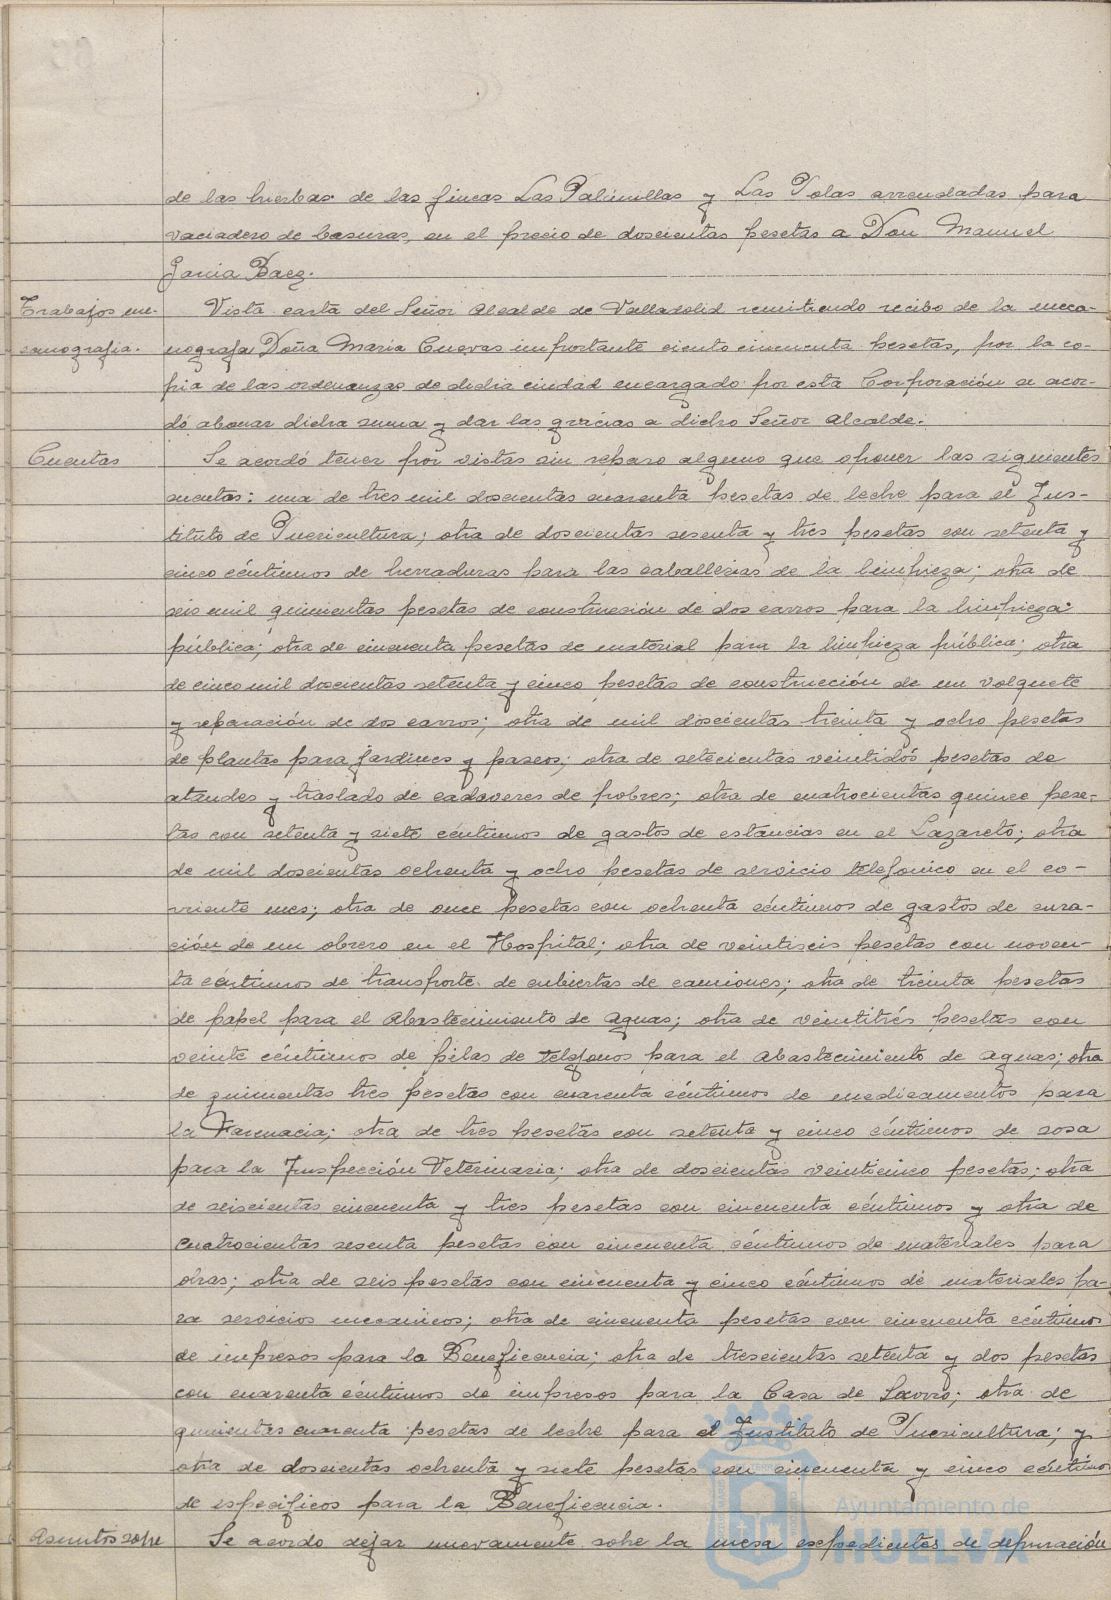 de las hierbas de las fincas Las Palmillas y Las Polas arrendadas para
vaciadero de basuras, en el precio de doscientas pesetas a Don Manuel
Garcia Baez.
Trabajos me-
canografia.
Vista carta del Señor Alcalde de Valladolid remitiendo recibo de la meca-
nografa Doña Maria Cuevas importante ciento cincuenta pesetas, por la co-
pia de las ordenanzas de dicha ciudad encargado por esta Corporación se acor-
dó abonar dicha suma y dar las gracias a dicho Señor Alcalde.
Cuentas
Se acordó tener por vistas sin reparo alguno que oponer las siguientes
cuentas: una de tres mil doscientas cuarenta pesetas de leche para el Ins-
tituto de Puericultura; otra de doscientas sesenta y tres pesetas con setenta y
cinco céntimos de herraduras para las caballerias de la limpieza; otra de
seis mil quinientas pesetas de construcción de dos carros para la limpieza
pública; otra de cincuenta pesetas de material para la limpieza pública; otra
de cinco mil doscientas setenta y cinco pesetas de construcción de un volquete
y reparación de dos carros; otra de mil doscientas treinta y ocho pesetas
de plantas para jardines y paseos; otra de setecientas veintidós pesetas de
ataudes y traslado de cadaveres de pobres; otra de cuatrocientas quince pese-
tas con setenta y siete céntimos de gastos de estancias en el Lazareto; otra
de mil doscientas ochenta y ocho pesetas de servicio telefonico en el co-
rriente mes; otra de once pesetas con ochenta céntimos de gastos de cura-
ción de un obrero en el Hospital; otra de veintiseis pesetas con noven-
ta céntimos de transporte de cubiertas de camiones; otra de treinta pesetas
de papel para el Abastecimiento de Aguas; otra de veintitrés pesetas con
veinte céntimos de pilas de telefonos para el Abastecimiento de Aguas; otra
de quinientas tres pesetas con cuarenta céntimos de medicamentos para
la Farmacia; otra de tres pesetas con setenta y cinco céntimos de sosa
para la Inspección Veterinaria; otra de doscientas veinticinco pesetas; otra
de seiscientas cincuenta y tres pesetas con cincuenta céntimos y otra de
cuatrocientas sesenta pesetas con cincuenta céntimos de materiales para
obras; otra de seis pesetas con cincuenta y cinco céntimos de materiales pa-
ra servicios mecanicos; otra de cincuenta pesetas con cincuenta céntimos
de impresos para la Beneficencia; otra de trescientas setenta y dos pesetas
con cuarenta céntimos de impresos para la Casa de Socorro; otra de
quinientas cuarenta pesetas de leche para el Instituto de Puericultura; y
otra de doscientas ochenta y siete pesetas con cincuenta y cinco céntimos
de especificos para la Beneficencia.
Asuntos sobre
Se acordo dejar nuevamente sobre la mesa expedientes de depuración
Ayuntamiento de
HUELVA